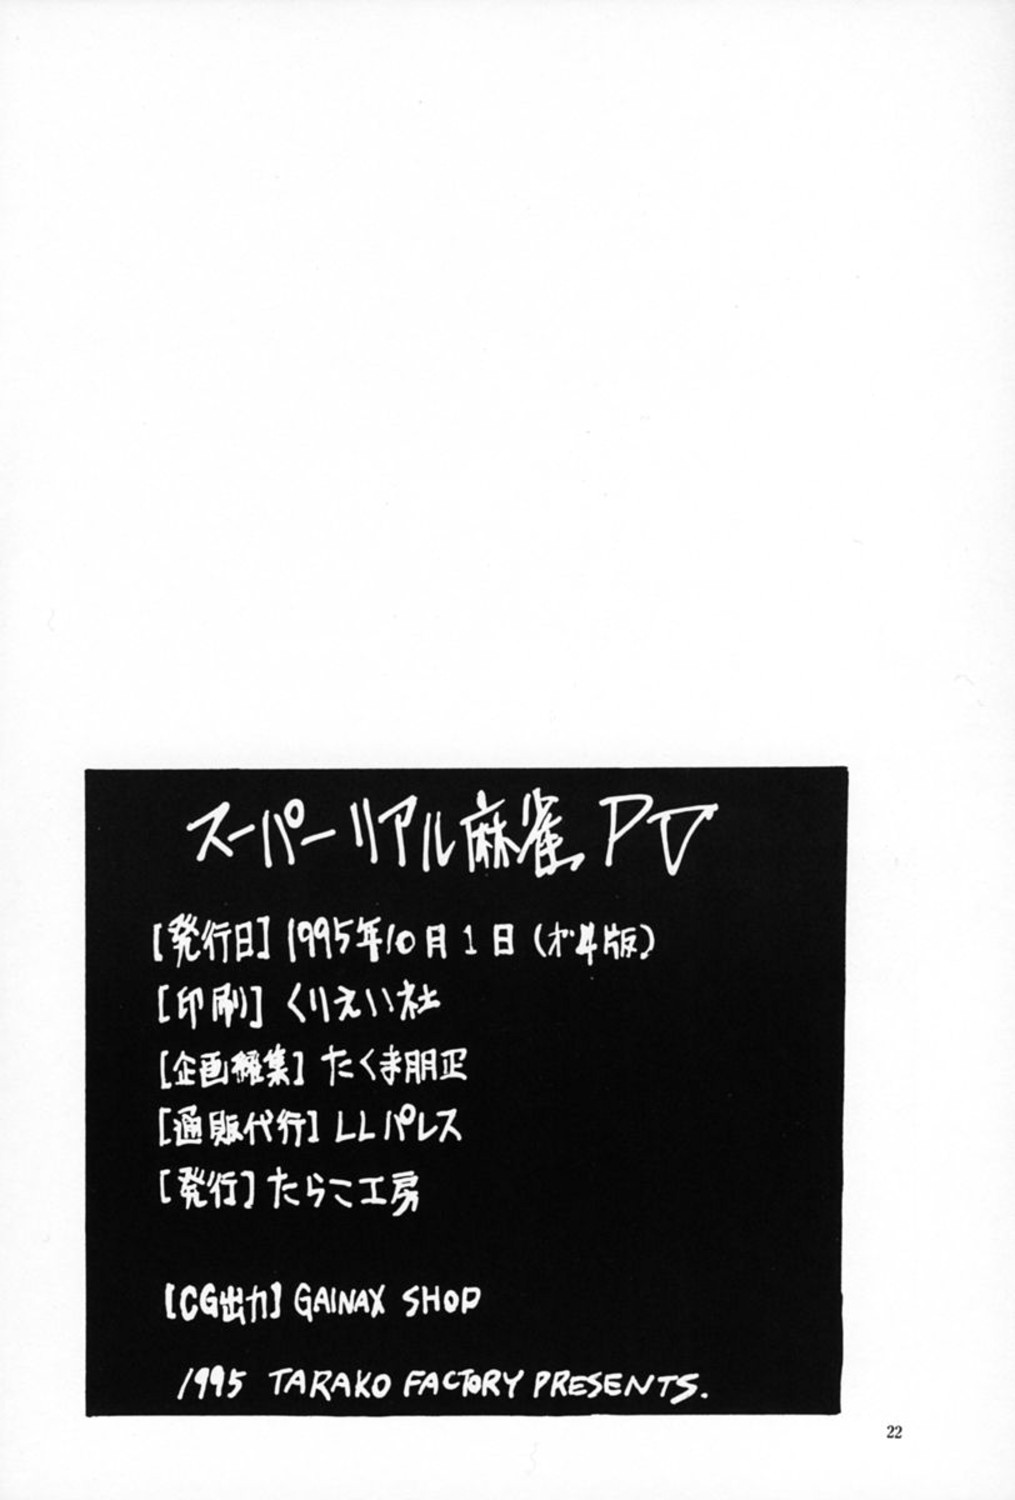 スーパーリアル麻雀PV
[発行日] 1995年10月1日(オ4版)
[印刷] くりえい社
[企画編集] たくま朋正
[通販代行] LLパレス
[発行] たらこ工房
[CG出力] GAINAX SHOP
1995 TARAKO FACTORY PRESENTS.
22